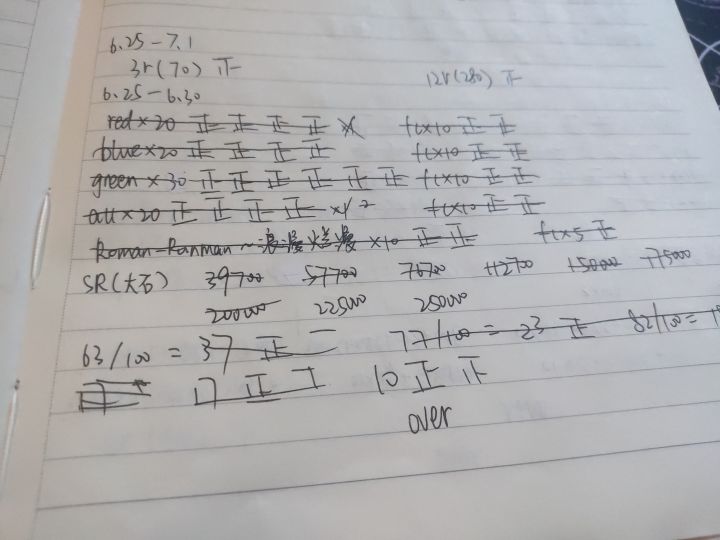 6.25-7.1
3r(70) 正 12r(280) 正
6.25-6.30
red×20 正 正 正 正 fc×10 正 正
blue×20 正 正 正 正 fc×10 正 正
green×30 正 正 正 正 正 正 fc×10 正 正
all×20 正 正 正 正 fc×10 正 正
Roman-Ranman~浪漫爛漫×10 正 正 fc×5 正
SR(大石) 39700 57700 76700 112700 150000 175000
200000 225000 250000
63/100=37 正 77/100=23 正 82/100=
17 正 10 正 正
over